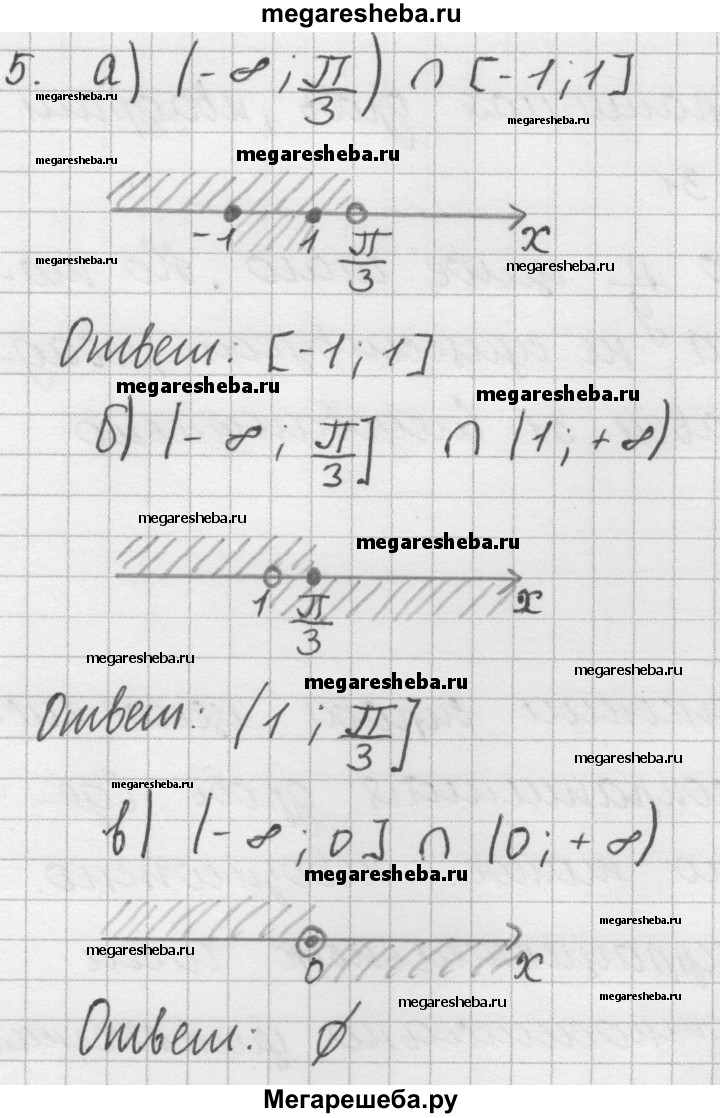 megaresheba.ru
5. а) (-∞; π/3) ∩ [-1; 1]
megaresheba.ru
megaresheba.ru
megaresheba.ru
megaresheba.ru
-1 1 π/3 x
megaresheba.ru
megaresheba.ru
Ответ: [-1; 1]
megaresheba.ru
megaresheba.ru
б) (-∞; π/3] ∩ (1; +∞)
megaresheba.ru
megaresheba.ru
1 π/3 x
megaresheba.ru
megaresheba.ru
megaresheba.ru
Ответ: (1; π/3]
megaresheba.ru
megaresheba.ru
в) (-∞; 0] ∩ (0; +∞)
megaresheba.ru
megaresheba.ru
megaresheba.ru
0 x
megaresheba.ru
megaresheba.ru
Ответ: ∅
Мегарешеба.ру